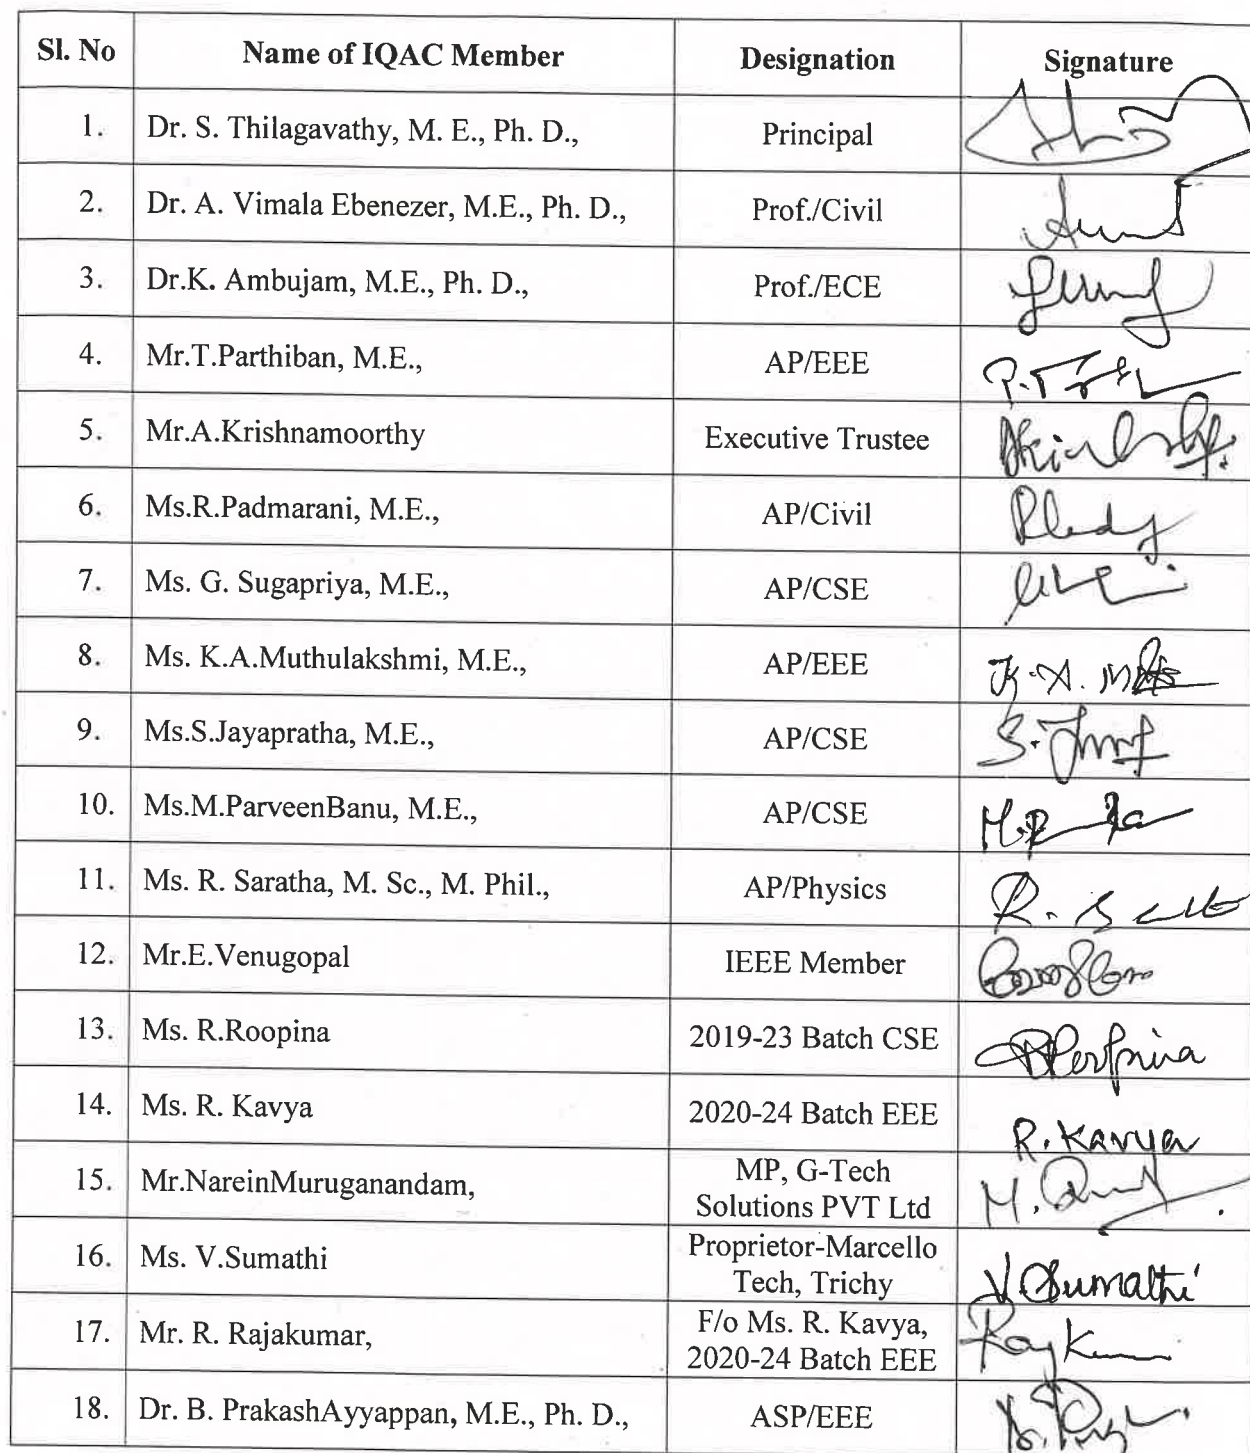 Sl. No Name of IQAC Member Designation Signature
1. Dr. S. Thilagavathy, M. E., Ph. D., Principal
2. Dr. A. Vimala Ebenezer, M.E., Ph. D., Prof./Civil
3. Dr.K. Ambujam, M.E., Ph. D., Prof./ECE
4. Mr.T.Parthiban, M.E., AP/EEE
5. Mr.A.Krishnamoorthy Executive Trustee
6. Ms.R.Padmarani, M.E., AP/Civil
7. Ms. G. Sugapriya, M.E., AP/CSE
8. Ms. K.A.Muthulakshmi, M.E., AP/EEE
9. Ms.S.Jayapratha, M.E., AP/CSE
10. Ms.M.ParveenBanu, M.E., AP/CSE
11. Ms. R. Saratha, M. Sc., M. Phil., AP/Physics
12. Mr.E.Venugopal IEEE Member
13. Ms. R.Roopina 2019-23 Batch CSE
14. Ms. R. Kavya 2020-24 Batch EEE R. Kavya
15. Mr.NareinMuruganandam, MP, G-Tech
Solutions PVT Ltd
16. Ms. V.Sumathi Proprietor-Marcello
Tech, Trichy V Sumathi
17. Mr. R. Rajakumar, F/o Ms. R. Kavya,
2020-24 Batch EEE
18. Dr. B. PrakashAyyappan, M.E., Ph. D., ASP/EEE